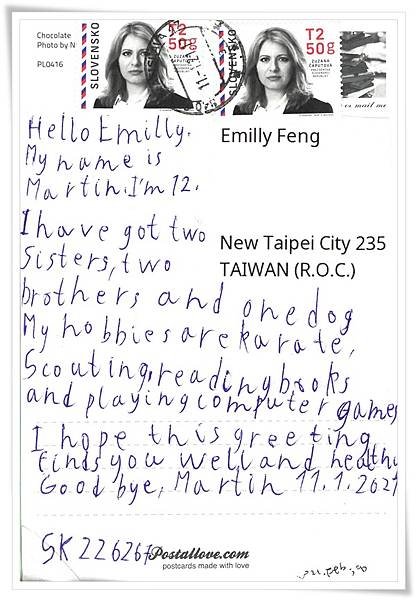 Chocolate
Photo by N
PL0416
SLOVENSKO
T2 50g
ZUZANA
ČAPUTOVÁ
PREZIDENTKA
SLOVENSKEJ
REPUBLIKY
SLOVENSKO
T2 50g
ZUZANA
ČAPUTOVÁ
PREZIDENTKA
SLOVENSKEJ
REPUBLIKY
mail me
Hello Emilly.
My name is
Martin. I'm 12.
I have got two
Sisters, two
brothers and one dog
My hobbies are karate,
Scouting, reading books
and playing computer games
I hope this greeting
finds you well and healthy
Good bye, Martin 11.1.2021
Emilly Feng
New Taipei City 235
TAIWAN (R.O.C.)
SK 226267
Postallove.com
postcards made with love